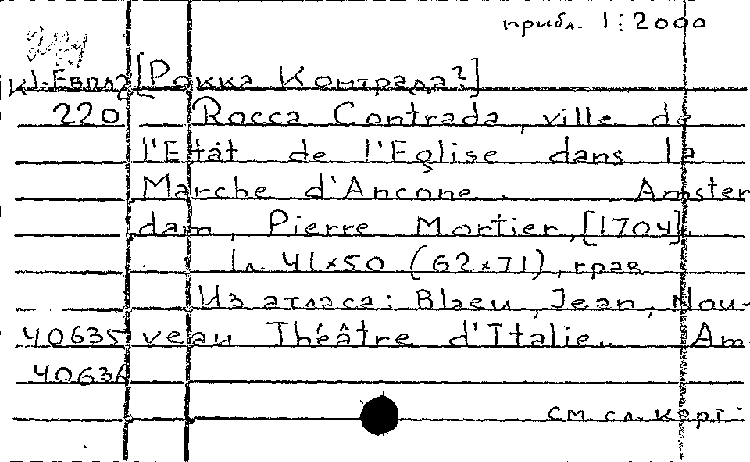 прибл. 1:2000
[Рокка Контрада?]
220 Rocca Contrada, ville de
l'Etát de l'Eglise dans la
Marche d'Ancone. Amster
dam, Pierre Mortier, [1704].
1л. 41x50 (62x71), грав
Из атласа: Blaeu, Jean, Nou-
40635 veau Théâtre d'Italie. Am
40636
см. сл. карт.